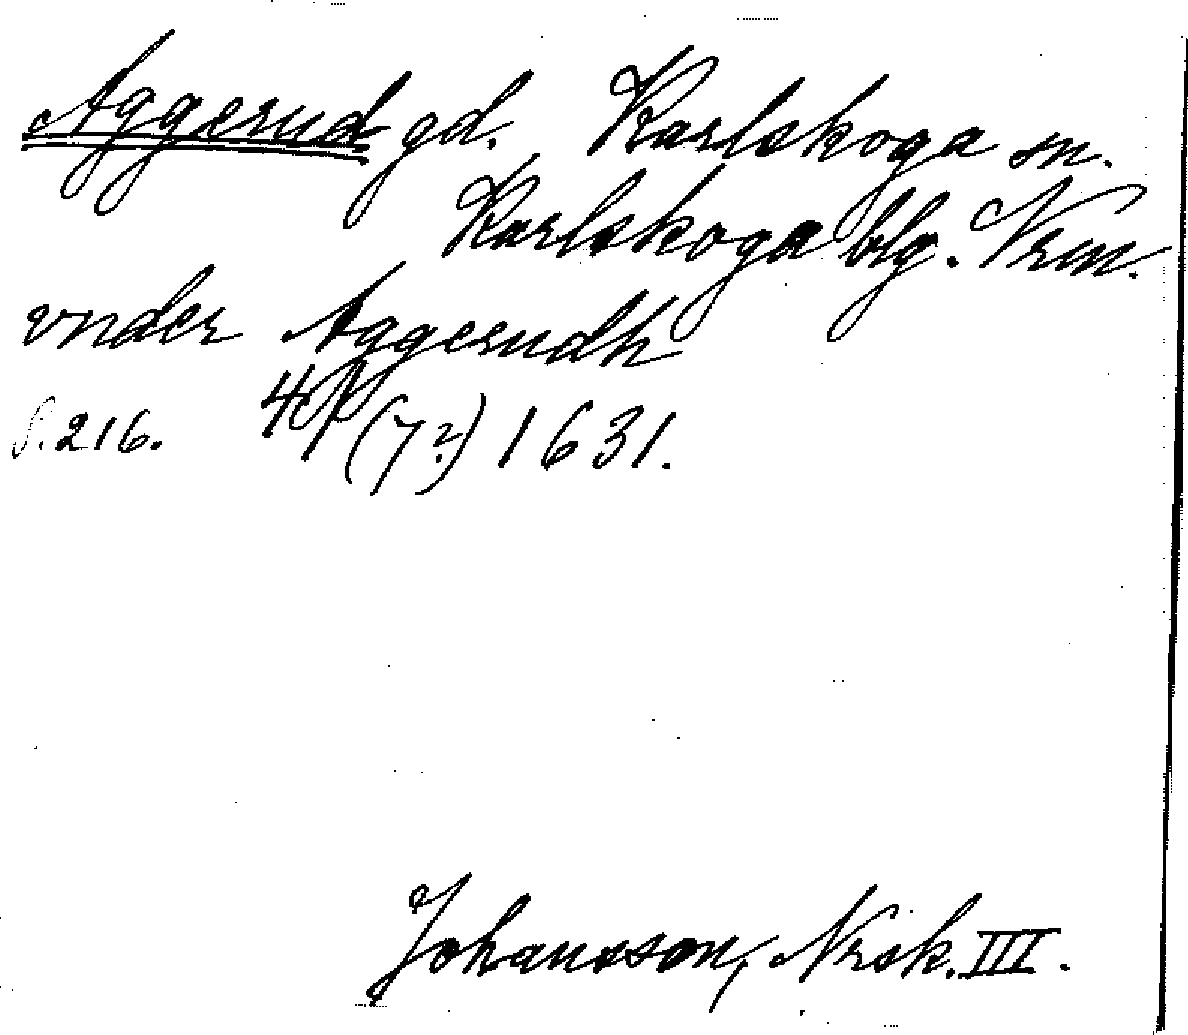 Aggerud gd. Karlskoga sn.
Karlskoga blg. Vrm.
vnder Aggerudh
S. 216. 4/1 (7?) 1631.
Johansson, Nrsk. III.